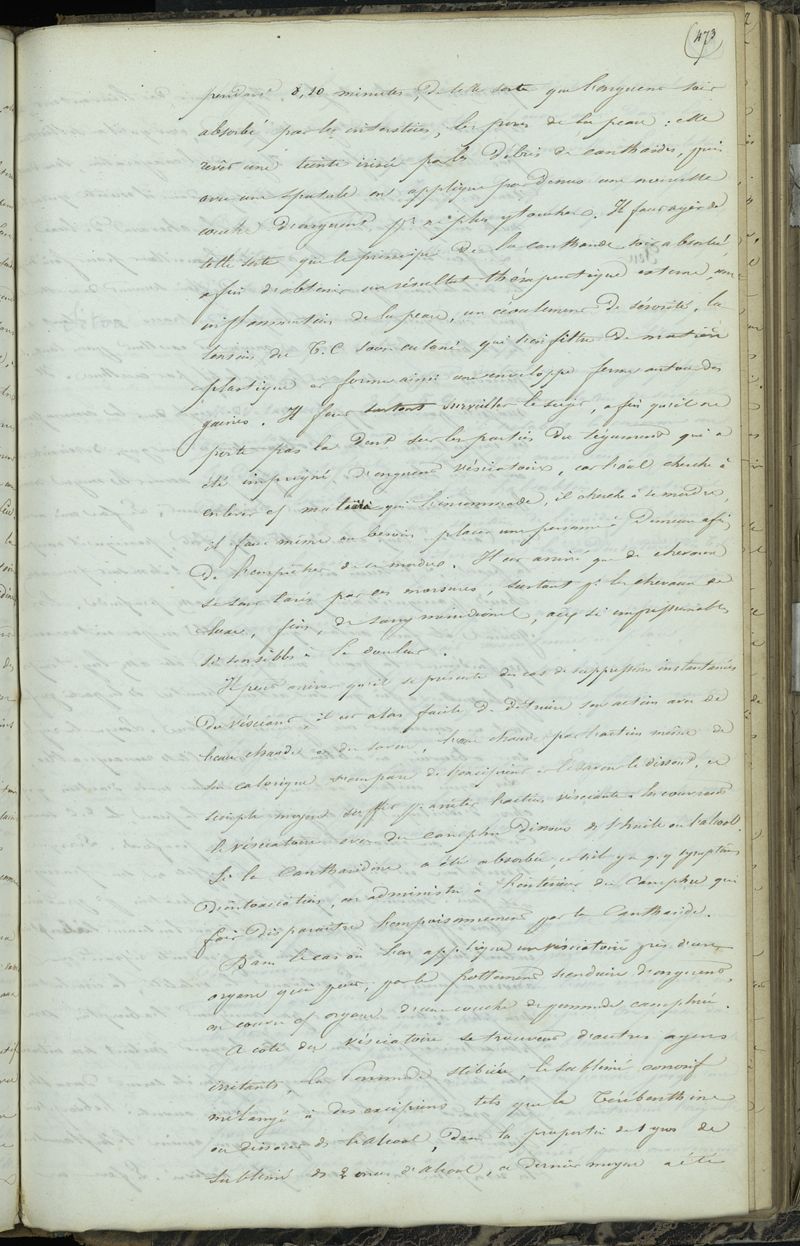 473
pendant 8, 10 minutes, de telle sorte que l'onguent soit
absorbé par les interstices, les pores de la peau : elle
revêt une teinte irisée par les débris de cantharides, puis
avec une spatule on applique par dessus une nouvelle
couche d'onguent pr n'y plus y toucher. Il faut agir de
telle sorte que le principe de la cantharide soit absorbé,
afin d'obtenir un résultat thérapeutique externe, une
inflammation de la peau, un écoulement de sérosité, la
tension du T. C sous cutané qui s'infiltre de matière
plastique et forme ainsi une enveloppe ferme autour des
gaines. Il faut surtout surveiller le sujet, afin qu'il ne
porte pas la dent sur les parties du tégument qui a
été imprégné d'onguent vésicatoire, car s'il cherche à
enlever cette matière qui l'incommode, il cherche à se mordre,
il faut même au besoin placer une personne à demeure afin
de l'empêcher de se mordre. Il est arrivé que des chevaux
se sont tarés par ces morsures, surtout pr les chevaux de
luxe, fins, de sang méridional, si impressionnables
si sensibles à la douleur.
Il peut arriver qu'il se présente des cas de suppression instantanée
du vésicant, il est alors facile de détruire son action avec de
l'eau chaude et du savon, l'eau chaude par l'action même de
son calorique s'empare de l'excipient et le savon le dissout, ce
simple moyen suffit pr arrêter l'action vésicante en couvrant
le vésicatoire avec du camphre dissous ds l'huile ou l'alcool.
Si la Cantharidine a été absorbée et s'il y a qq symptômes
d'intoxication, on administre à l'intérieur du Camphre qui
fait disparaître l'empoisonnement par la Cantharide.
Dans le cas où l'on applique un vésicatoire près d'un
organe qui peut, par le frottement s'enduire d'onguent,
on couvre cet organe d'une couche de pommade camphrée.
A côté du vésicatoire se trouvent d'autres agens
irritants, la Pommade stibiée, le sublimé corrosif
mélangé à des excipiens tels que la Térébenthine
ou dissout ds l'alcool, dans la proportion de 1 gros de
sublimé ds 2 onces d'alcool, ce dernier moyen a été